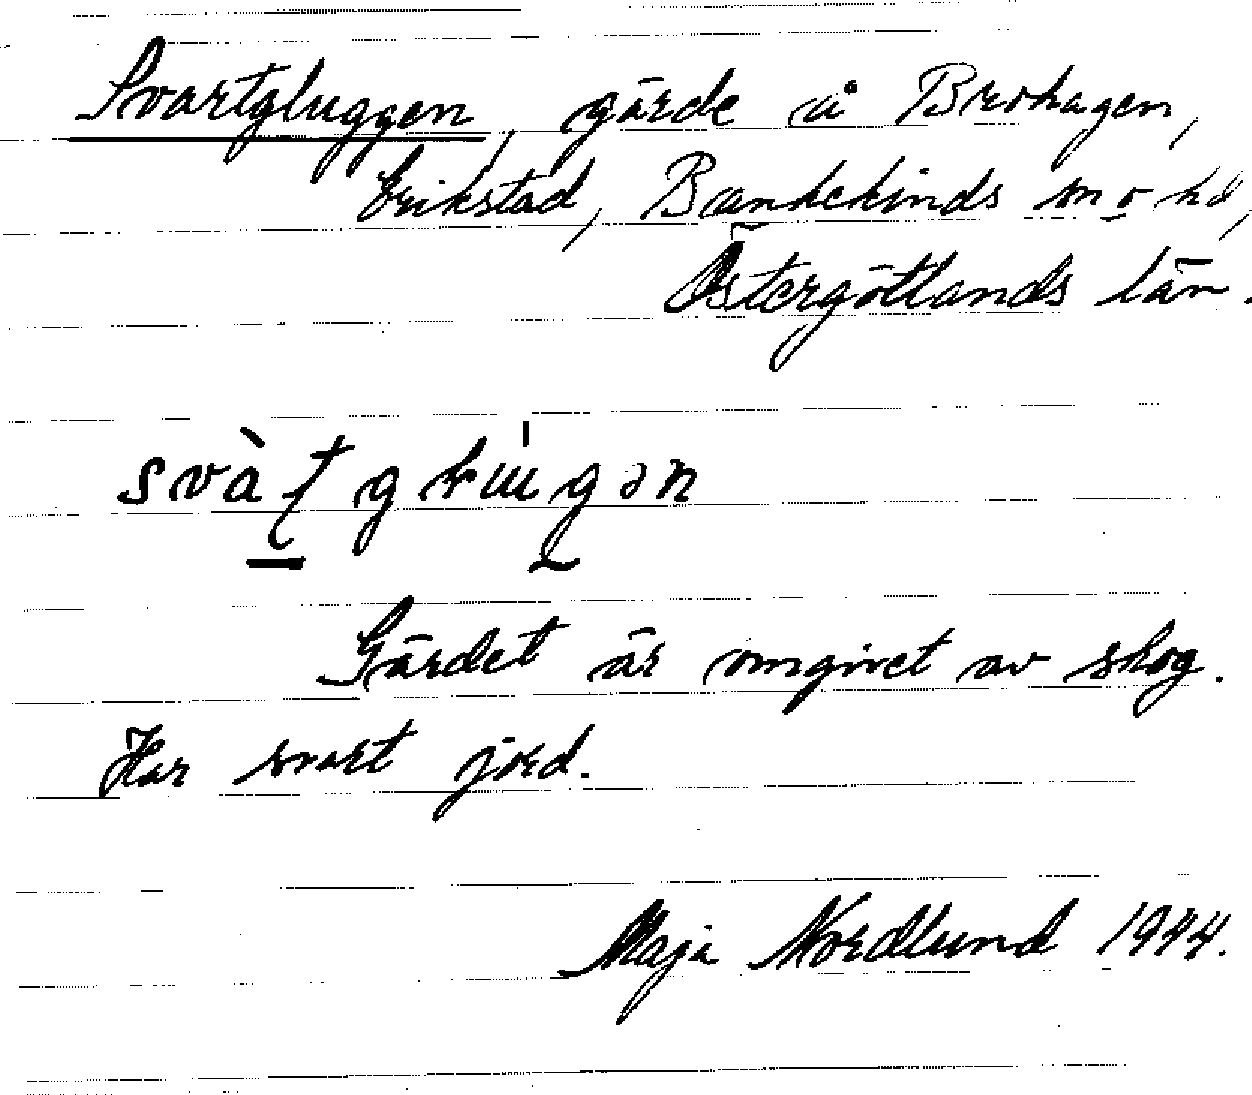 Svartgluggen, gärde å Brohagen,
Erikstad, Bankekinds sn o hd,
Östergötlands län.
Gärdet är omgivet av skog.
Har svart jord.
Maja Nordlund 1944.